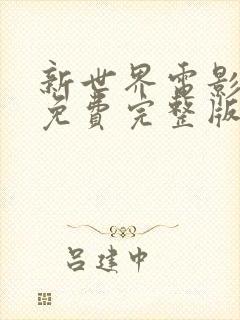 新世界电影
免费完整版
吕建中